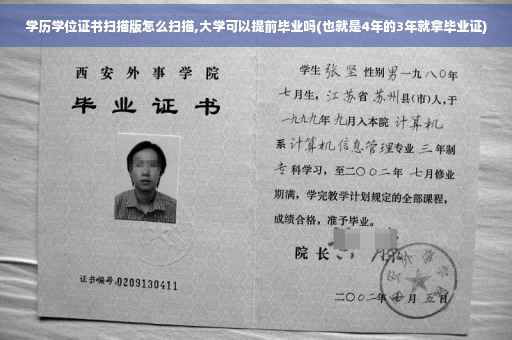 学历学位证书扫描版怎么扫描,大学可以提前毕业吗(也就是4年的3年就拿毕业证)
西安外事学院
毕业证书
证书编号:0209130411
学生 张坚 性别 男 一九八〇年
七月生, 江苏省 苏州 县(市)人,于
一九九九年 九月入本院 计算机
系 计算机信息管理 专业 三 年制
专 科学习，至二〇〇二年 七月修业
期满，学完教学计划规定的全部课程，
成绩合格，准予毕业。
院 长
二〇〇二年 月 五日